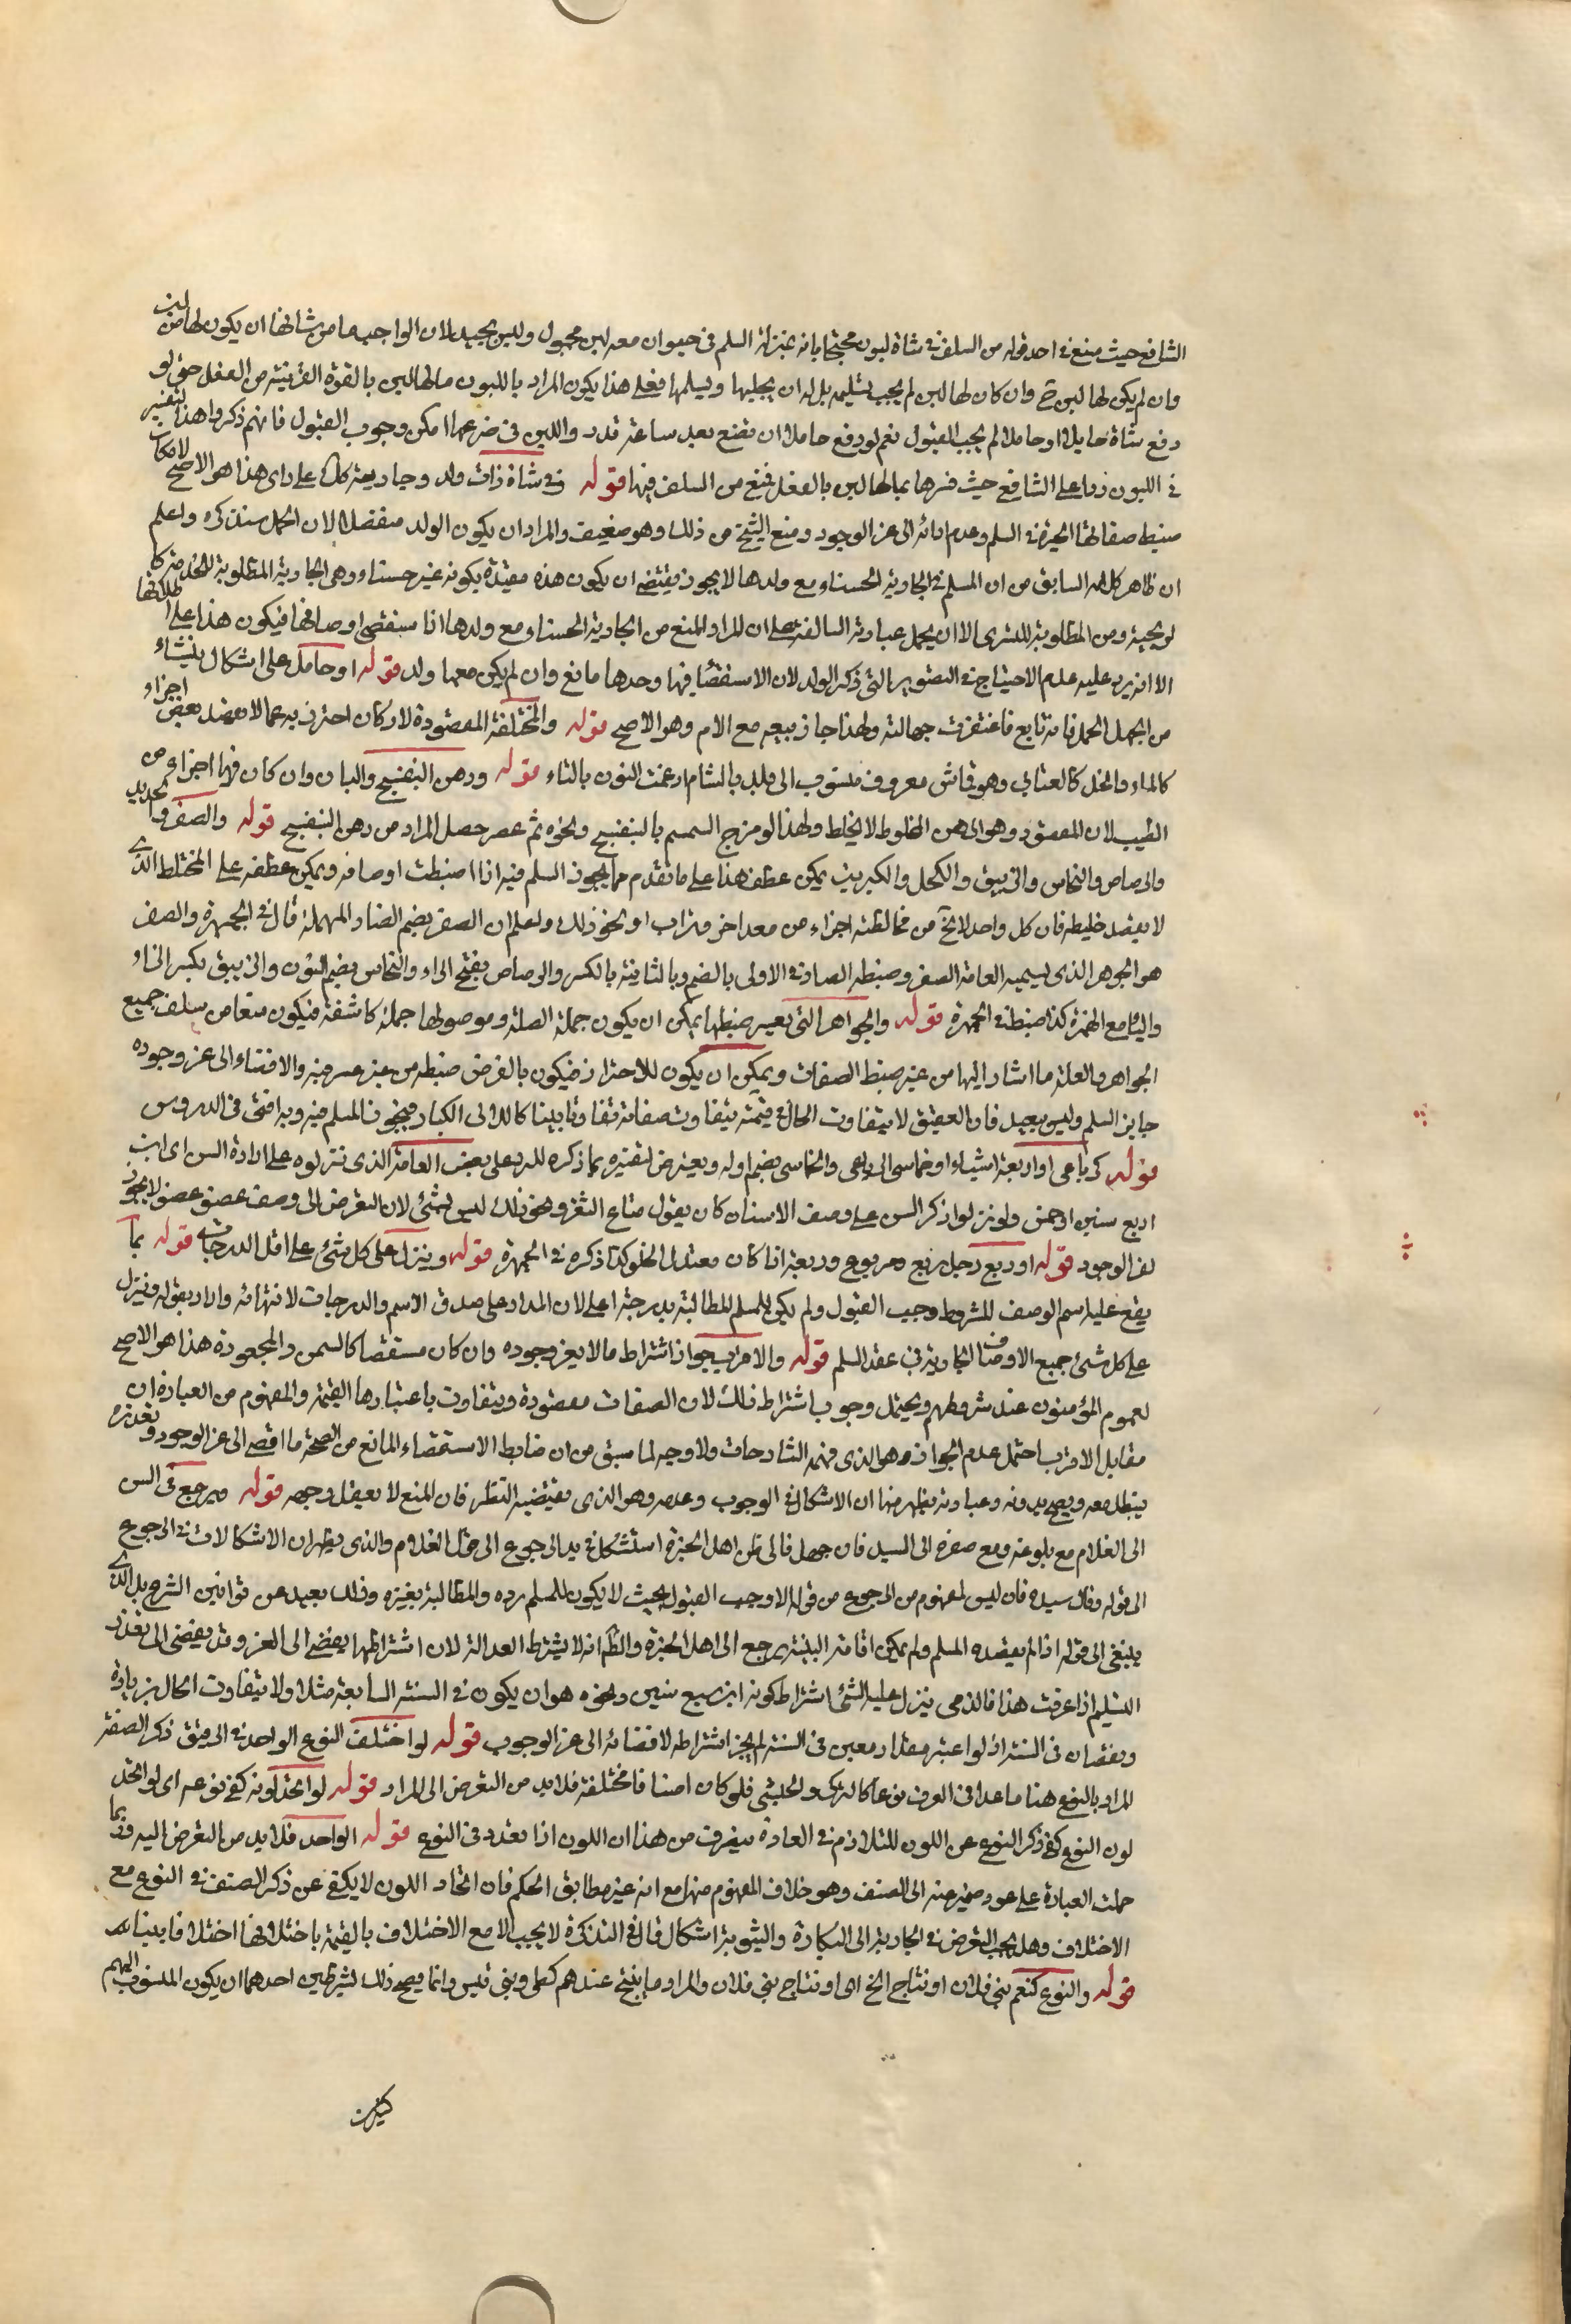 الشافعي حيث منع في احد قوليه من السلف في شاة لبون محتجا بانه بمنزلة السلم في حيوان معه لبن مجهول وليس بجيد لان الواجب ما من شانها ان يكون لها لبن
وان لم يكن لها لبن ح وان كان لها لبن لم يجب تسليمه بل له ان يحلبها ويسلمها فعلى هذا يكون المراد باللبون ما لها لبن بالقوة القريبة من الفعل حتى لو
دفع شاة حايلا او حاملا لم يجب القبول نعم لو دفع حاملا ان تضع بعد ساعة قدر واللبن في ضرعها امكن وجوب القبول فانهم ذكروا هذا التفسير
في اللبون ردا على الشافعي حيث فسرها بما لها لبن بالفعل فمنع من السلف فيها قوله في شاة ذات ولد وجارية كذلك على راي هذا هو الاصح لامكان
ضبط صفاتها المعتبرة في السلم وعدم ادائه الى عز الوجود ومنع الشيخ من ذلك وهو ضعيف والمراد ان يكون الولد منفصلا لان الحمل سنذكره واعلم
ان ظاهر كلامه السابق من ان المسلم في الجارية الحسناء مع ولدها لا يجوز يقتضي ان يكون هذه مقيدة بكونه غير حسناء وهي الجارية المطلوبة للخدمة كا
لزنجية دون المطلوبة للتسري الا ان يحمل عبارته السالفة على ان المراد المنع من الجارية الحسناء مع ولدها اذا استقصى اوصافها فيكون هذا على اطلاقها
الا انه يرد عليه عدم الاحتياج في التصوير الى ذكر الولد لان الاستقصاء فيها وحدها مانع وان لم يكن معها ولد قوله او حامل على اشكال ينشاء
من الجهل الحمل فانه تابع فاغتفرت جهالته ولهذا جاز بيعه مع الام وهو الاصح قوله والمختلفة المقصودة لاركان احترز به عما لا يقصد بعض اجزاء
كالماء والخل كالعتابي وهو قماش معروف منسوب الى بلد بالشام ادغمت النون بالتاء قوله ودهن البنفسج والبان وان كان فيها اجزاء من
الطيب لان المقصود وهو الدهن المخلوط لا الخلط ولهذا لو مزج السمسم بالبنفسج ونحوه ثم عصر حصل المراد من دهن البنفسج قوله والصفر والحديد
والرصاص والنحاس والزيبق والكحل والكبريت يمكن عطف هذا على ما تقدم مما يجوز السلم فيه اذا انضبطت اوصافه ويمكن عطفه على المختلط الذي
لا يقصد خليطه فان كل واحد لا يخ من مخالطته اجزاء من معدن اخر وتراب او نحو ذلك واعلم ان الصفر بضم الصاد المهملة قال في الجمهرة والصفر
هو الجوهر الذي يسميه العامة الصفر وضبطه الصاد في الاولى بالضم وبالثانية بالكسر والرصاص بفتح الراء والنحاس بضم النون والزيبق بكسر الزاء
والياء مع الهمزة كذا ضبط في الجمهرة قوله والجواهر التي يعسر ضبطها يمكن ان يكون جملة الصلة وموصولها جملة كاشفة فيكون منعا من سلف جميع
الجواهر والعلة ما اشار اليها من عسر ضبط الصفات ويمكن ان يكون للاحتراز فيكون بالفرض ضبطه من غير عسر فيه والافضاء الى عز وجوده
جايز السلم وليس ببعيد فان العقيق لا يتفاوت الحال في قيمته بتفاوت صفاته تفاوتا بينا كاللالي الكبار فيجوز المسلم فيه وبه افتى في الدروس
قوله كرباعي او اربعة اشبار او خماسي الرباعي والخماسي بضم اوله وتعرض لتفسيره بما ذكره للرد على بعض العامة الذي نزلوه على ارادة السن اي ابن
اربع سنين او خمس ونزلوا ذكر السن على وصف الاسنان كان يقول متاع الثغر ونحو ذلك ليس بشئ لان التعرض الى وصف عضو عضو لا يجوز
لعز الوجود قوله او ربع رجل ربع مربوع وربعة اذا كان معتدل الخلق كذا ذكره في الجمهرة قوله وينزل على كل شئ على اقل الدرجات قوله بما
يقع عليه اسم الوصف للشروط وجب القبول ولم يكن للمسلم المطالبة بدرجة اعلى لان المدار على صدق الاسم والدرجات لا نهاية وارادبقوله وينزل
على كل شئ جميع الاوصاف الجارية في عقد السلم قوله والاقرب جواز اشتراط ما لا يعز وجوده وان كان مستقصا كالسمن والجعودة هذا هو الاصح
لعموم المؤمنون عند شروطهم ويحتمل وجوب اشتراط ذلك لان الصفات مقصودة ويتفاوت باعتبارها القيمة والمفهوم من العبارة ان
مقابل الاقرب احتمل عدم الجواز وهو الذي فهمه الشارحان ولا وجه لما سبق من ان ضابط الاستقصاء المانع من الصحة ما افضى الى عز الوجود وتعذره
يبطل معه ويصح بدونه وعبارته يظهر منها ان الاشكال في الوجوب وعدمه وهو الذي يقتضيه النظر فان المنع لا يعقل وجهه قوله ويرجع في السن
الى الغلام مع بلوغه ومع صغره الى السيد فان جهل فالى ظن اهل الخبرة استشكل في يد الرجوع الى قول الغلام والذي يظهر ان الاشكالات في الرجوع
الى قوله وقال سيده فان ليس لمفهوم من الرجوع من قوله الا وجب القبول بحيث لا يكون للمسلم رده والمطالبة بغيره وذلك بعيد عن قوانين الشرع بل الذي
ينبغي الى قوله اذا لم يصدقه المسلم ولم يمكن اقامة البينة يرجع الى اهل الخبرة والظ انه لا يشترط العدالة لان اشتراطها يفضي الى العز وقد يفضي الى تعذر
التسليم اذا عرفت هذا فالذي ينزل عليه الشئ اشتراط كونه ابن سبع سنين ونحوه هو ان يكون في السنة السابعة مثلا ولا يتفاوت الحال بزيادة
ونقصان في السنة اذ لو اعتبر مقدار معين في السنة لم يجز اشتراطه لافضائه الى عز الوجوب قوله لو اختلف النوع الواحد في الرقيق ذكر الصفة
المراد بالنوع هنا ما عد في العرف نوعا كالتركي والحبشي فلو كان اصنافا مختلفة فلا بد من التعرض الى المراد قوله لو اتحد لونه كفى نوعه اى لو اتحد
لون النوع كفى ذكر النوع عن اللون للتلازم في العادة فيعرف من هذا ان اللون اذا تعدد في النوع قوله الواحد فلا بد من التعرض اليه وربما
حملت العبارة على عود ضميره الى الصنف وهو خلاف المفهوم منها مع انه غير مطابق الحكم فان اتحاد اللون لا يكفي عن ذكر الصنف في النوع مع
الاختلاف وهل يجب التعرض في الجارية الى البكارة والثيوبة اشكال قال في التذكرة لا يجب الا مع الاختلاف بالقيمة باختلافها اختلافا بينا
قوله والنوع كنعم بني فلان او نتاج الخ اى او نتاج بني فلان والمراد ما ينتج عندهم كطي وبني قيس وانما يصح ذلك بشرطين احدهما ان يكون المنسوب اليهم
كثيرين